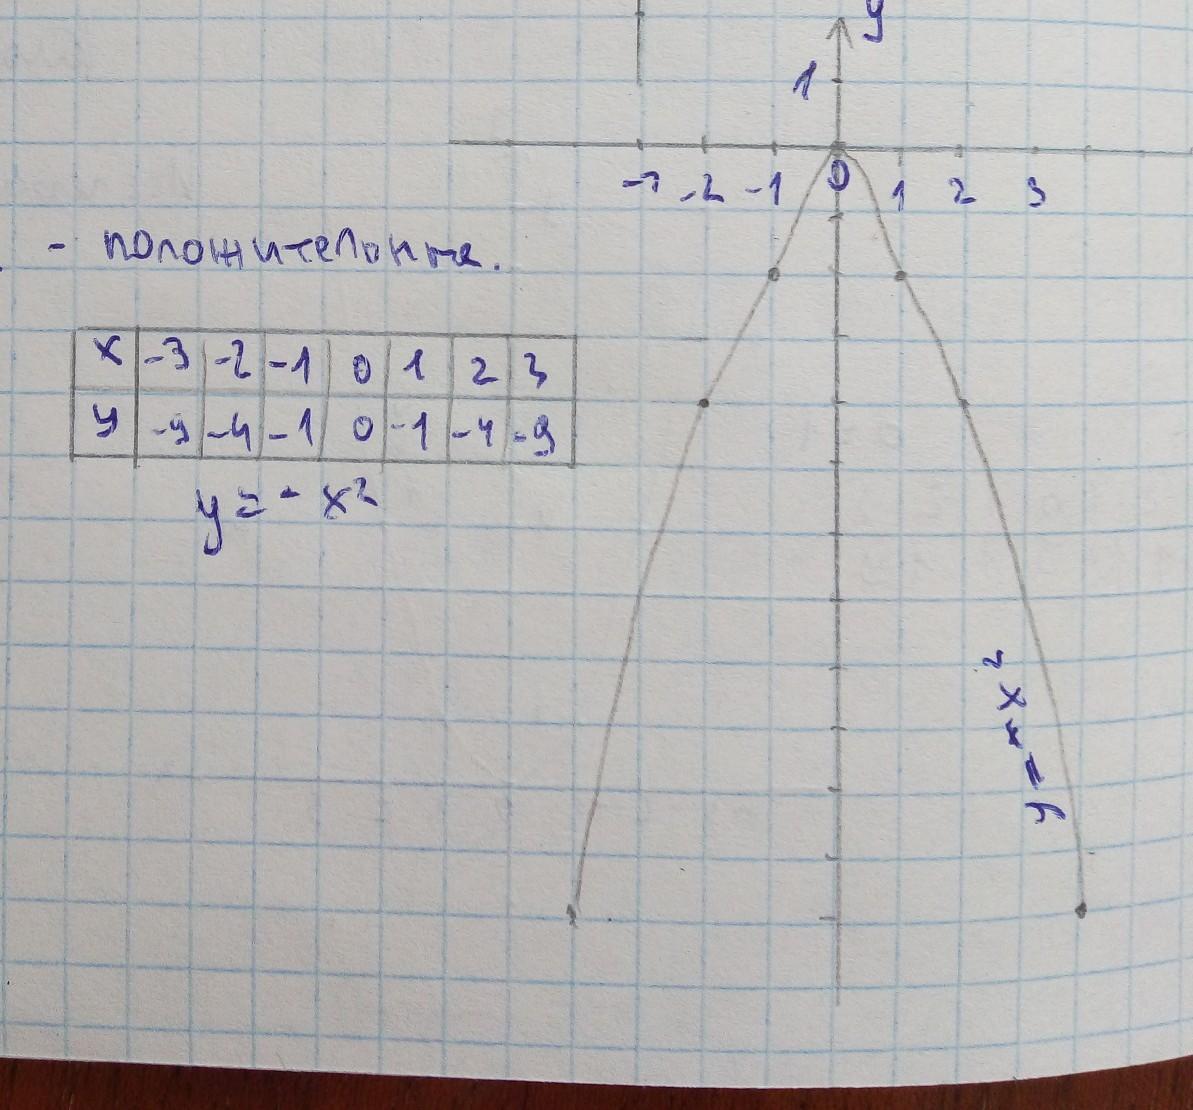 y
1
-3 -2 -1 0 1 2 3
- положительные.
x -3 -2 -1 0 1 2 3
y -9 -4 -1 0 -1 -4 -9
y = - x²
y = - x²